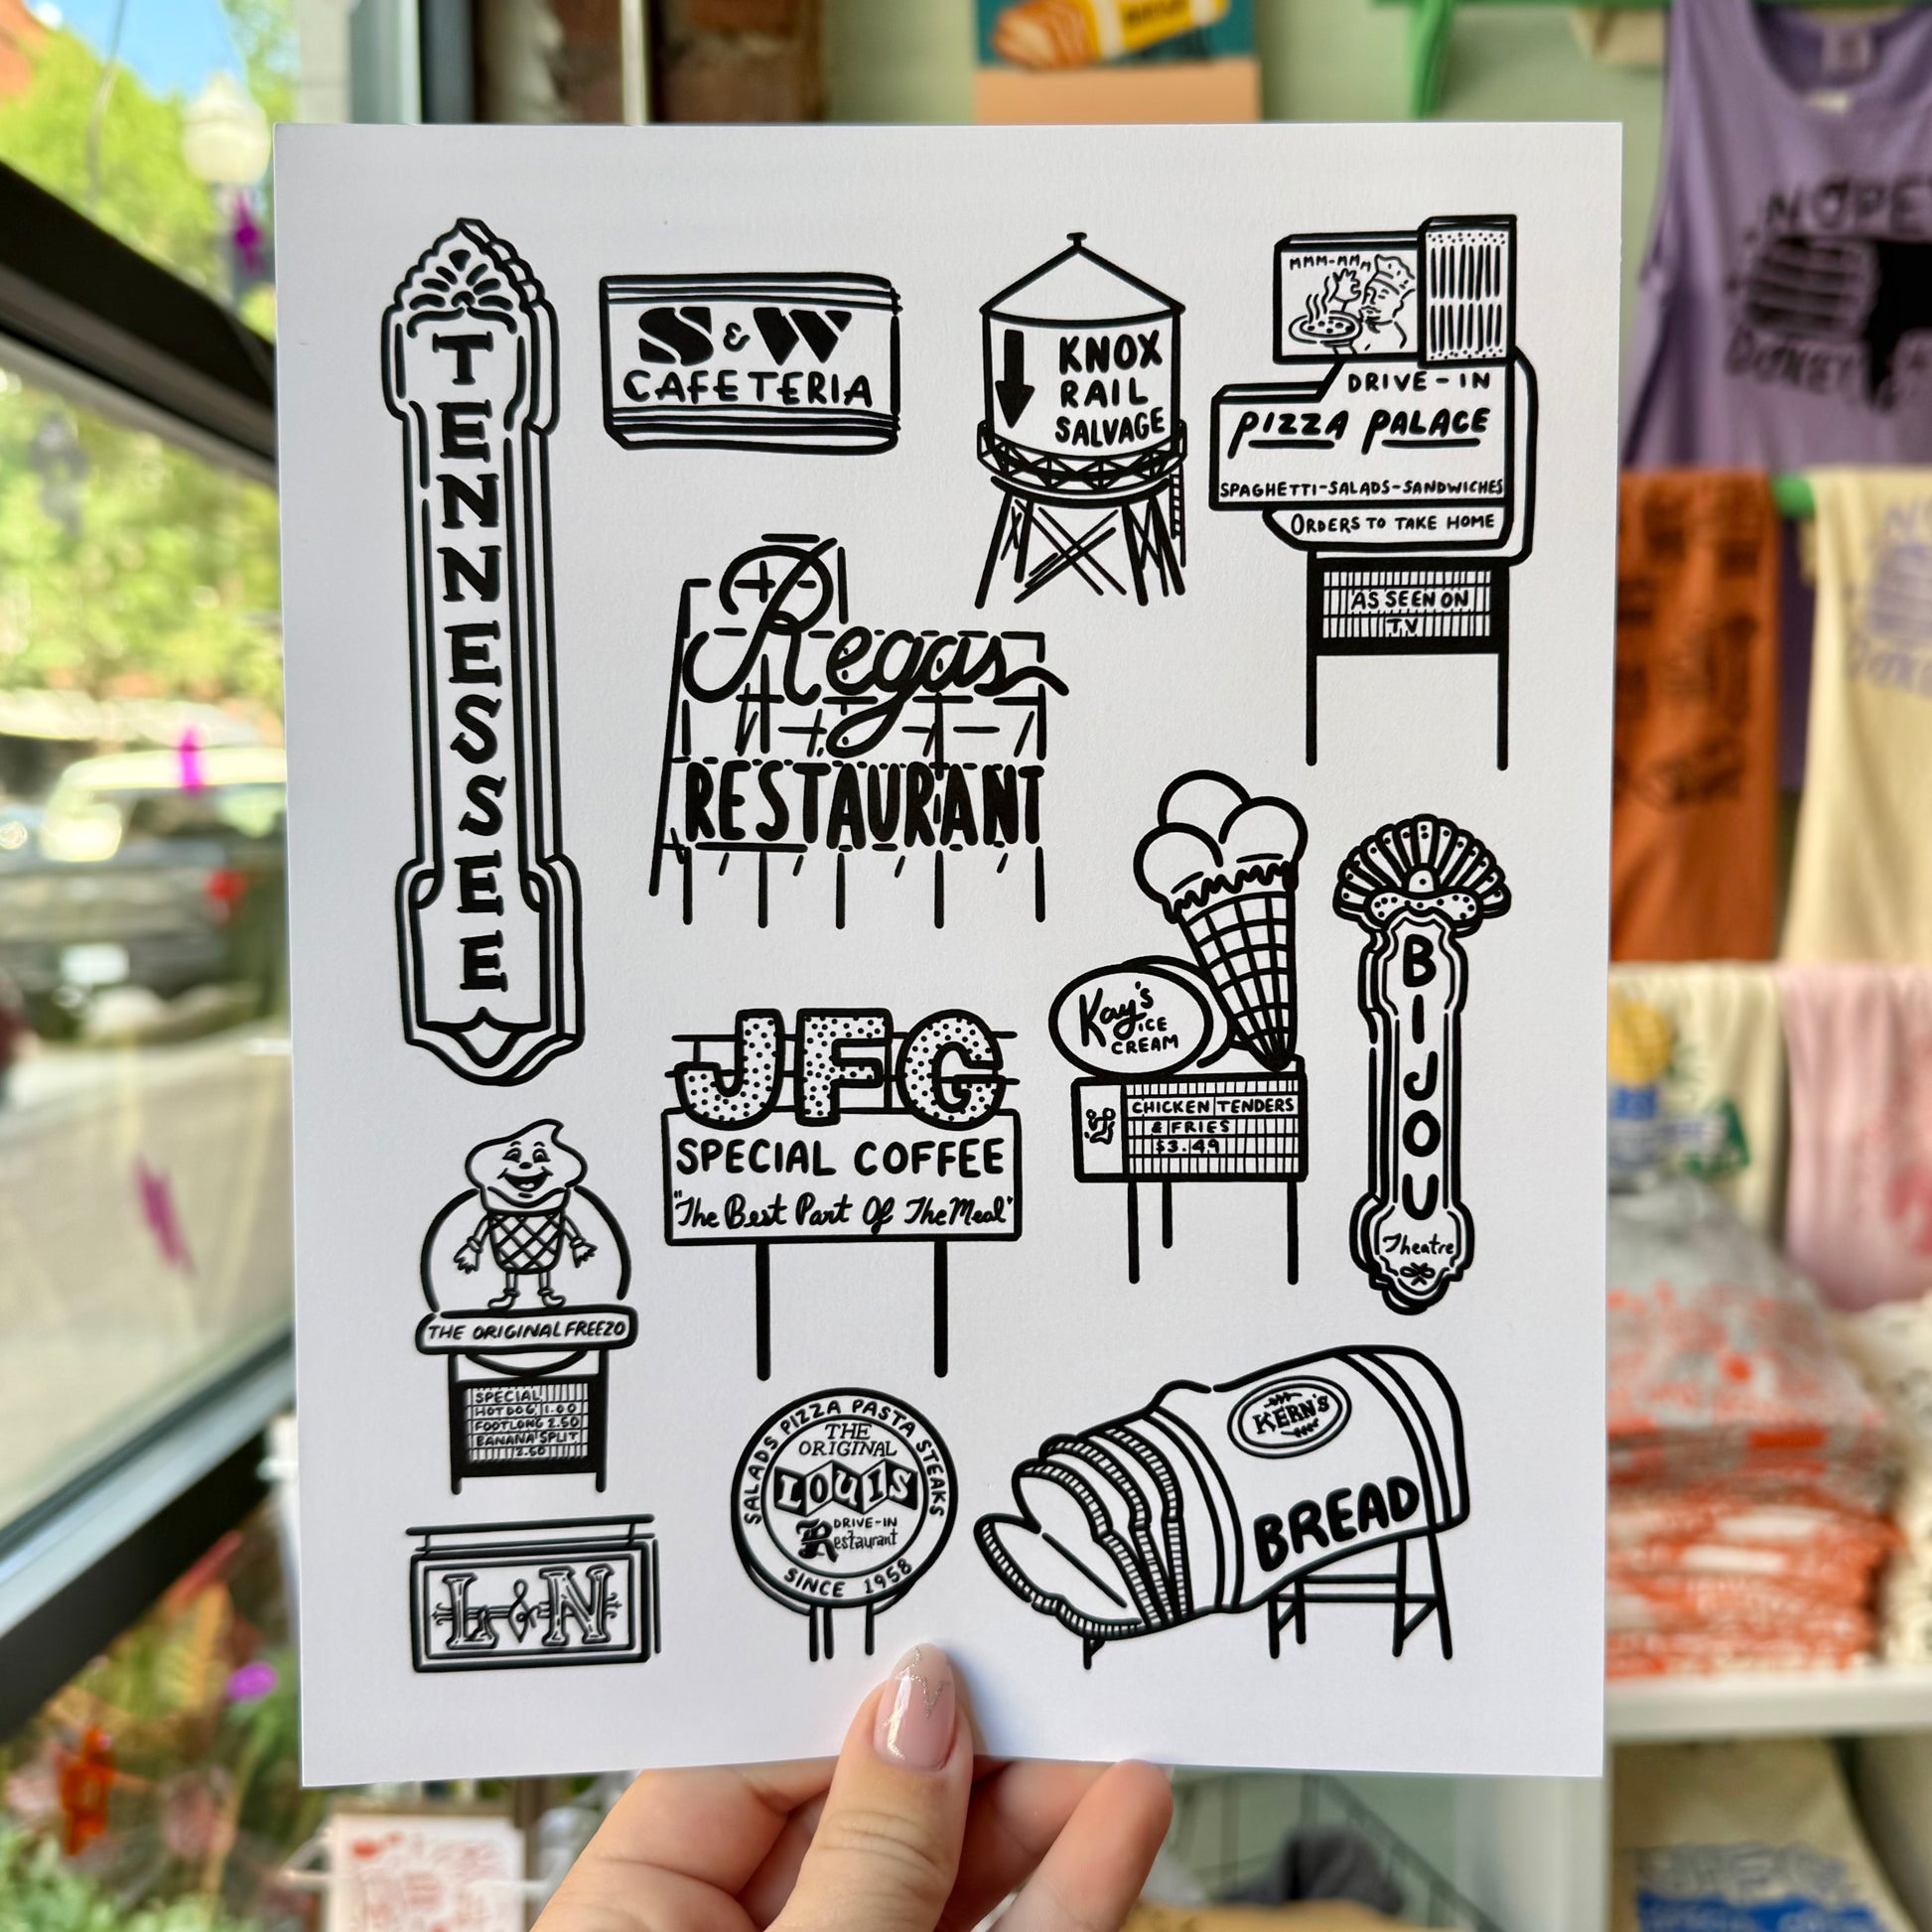 TENNESSEE
S & W
CAFETERIA
KNOX
RAIL
SALVAGE
MMM-MMM
DRIVE-IN
PIZZA PALACE
SPAGHETTI-SALADS-SANDWICHES
ORDERS TO TAKE HOME
AS SEEN ON
TV
Regas
RESTAURANT
Kay's
ICE
CREAM
CHICKEN TENDERS
& FRIES
$3.49
BIJOU
Theatre
JFG
SPECIAL COFFEE
"The Best Part Of The Meal"
THE ORIGINAL FREEZO
SPECIAL
HOT DOG 1.00
FOOTLONG 2.50
BANANA SPLIT
2.50
SALADS PIZZA PASTA STEAKS
THE
ORIGINAL
LOUIS
DRIVE-IN
Restaurant
SINCE 1958
KERN'S
BREAD
L&N